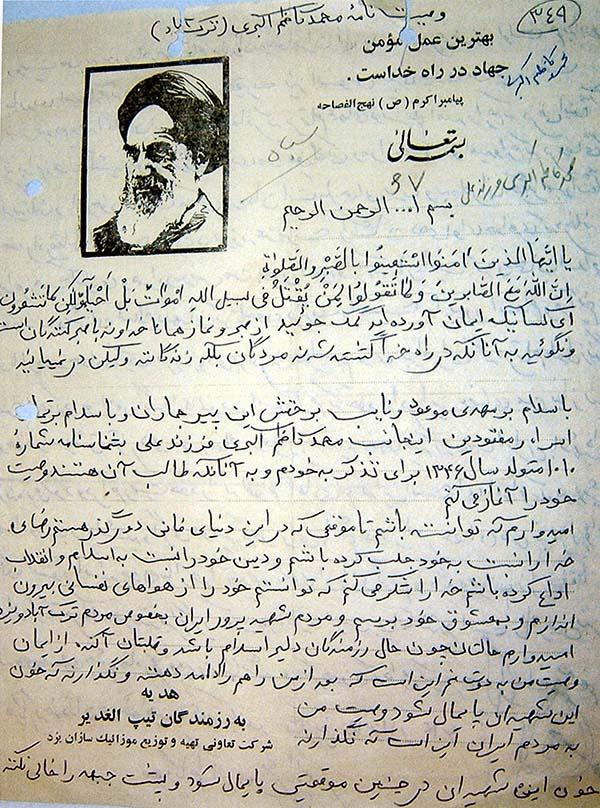 ۳۴۹
وصیت نامه محمد کاظم اکبری (ترک آباد)
بهترین عمل مؤمن
جهاد در راه خداست .
محمد کاظم اکبری
پیامبر اکرم (ص) نهج الفصاحه
بسمه تعالی
محمد کاظم اکبری فرزند علی
۳۷
بسم ا... الرحمن الرحیم
یا ایها الذین امنوا استعینوا بالصبر و الصلوة
ان الله مع الصابرین و لا تقولوا لمن یقتل فی سبیل الله اموات بل احیاء ولکن لا تشعرون
ای کسانیکه ایمان آورده اید کمک جوئید از صبر و نماز همانا خداوند با صبر کنندگان است
ونگوئید به آنانکه در راه خدا کشته شدند مردگان بلکه زندگانند ولیکن در نمییابید
با سلام بر مهدی موعود و نایب بر حقش این پیر جماران و با سلام بر تمام
اسراء و مفقودین اینجانب محمد کاظم اکبری فرزند علی بشناسنامه شمارهٔ
۱۰۱۰ متولد سال ۱۳۴۶ برای تذکر به خودم و به آنانکه طالب آن هستند وصیت
خود را آغاز می کنم
امیدوارم که توانسته باشم تا موقعی که در این دنیای فانی دو گذر هستم رضای
خدا را نسبت به خود جلب کرده باشم و دین خود را نسبت به اسلام و انقلاب
اداء کرده باشم خدا را شکر می کنم که توانستم خود را از هواهای نفسانی بیرون
اندازم و بمعشوق خود برسم و مردم شهید پرور ایران بخصوص مردم ترک آباد و یزد
امیدوارم حالتان چون حال رزمندگان دلیر اسلام باشد و قلبتان آکنده از ایمان
وصیت من به دوستانم این است که بعد از من راهم را ادامه دهند و نگذارند که خون
هدیه
به رزمندگان تیپ الغدیر
شرکت تعاونی تهیه و توزیع موزائیک سازان یزد
این شهیدان پایمال شود وصیت من
به مردم ایران این است که نگذارند
خون این شهیدان در چنین موقعیتی پایمال شود و پشت جبهه را خالی نکنند